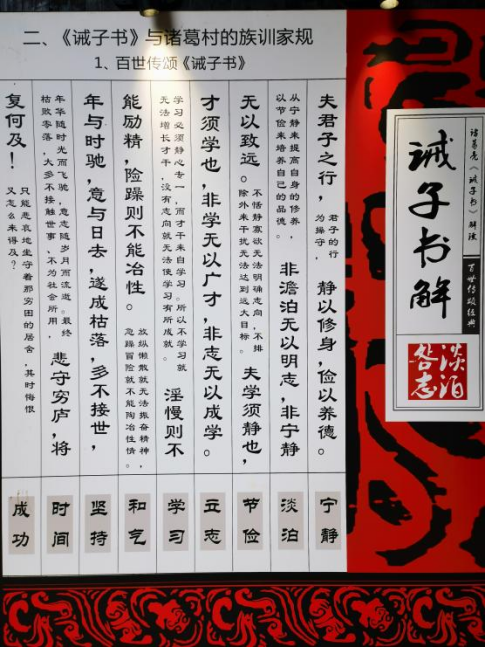 二、《诫子书》与诸葛村的族训家规
1、百世传颂《诫子书》
诸葛亮《诫子书》解读
百世传颂经典
诫子书解
淡泊
夫君子之行，
君子的行
为操守，
静以修身，俭以养德。
从宁静来提高自身的修养，
以节俭来培养自己的品德。
非澹泊无以明志，非宁静
无以致远。
不恬静寡欲无法明确志向，不排
除外来干扰无法达到远大目标。
夫学须静也，
才须学也，非学无以广才，非志无以成学。
学习必须静心专一，而才干来自学习。所以不学习就
无法增长才干，没有志向就无法使学习有所成就。
淫慢则不
能励精，险躁则不能冶性。
放纵懒散就无法振奋精神，
急躁冒险就不能陶冶性情。
年与时驰，意与日去，遂成枯落，多不接世，
年华随时光而飞驰，意志随岁月而流逝。最终
枯败零落，大多不接触世事、不为社会所用，
悲守穷庐，将
复何及！
只能悲哀地坐守着那穷困的居舍，其时悔恨
又怎么来得及？
宁静
淡泊
节俭
立志
学习
和气
坚持
时间
成功